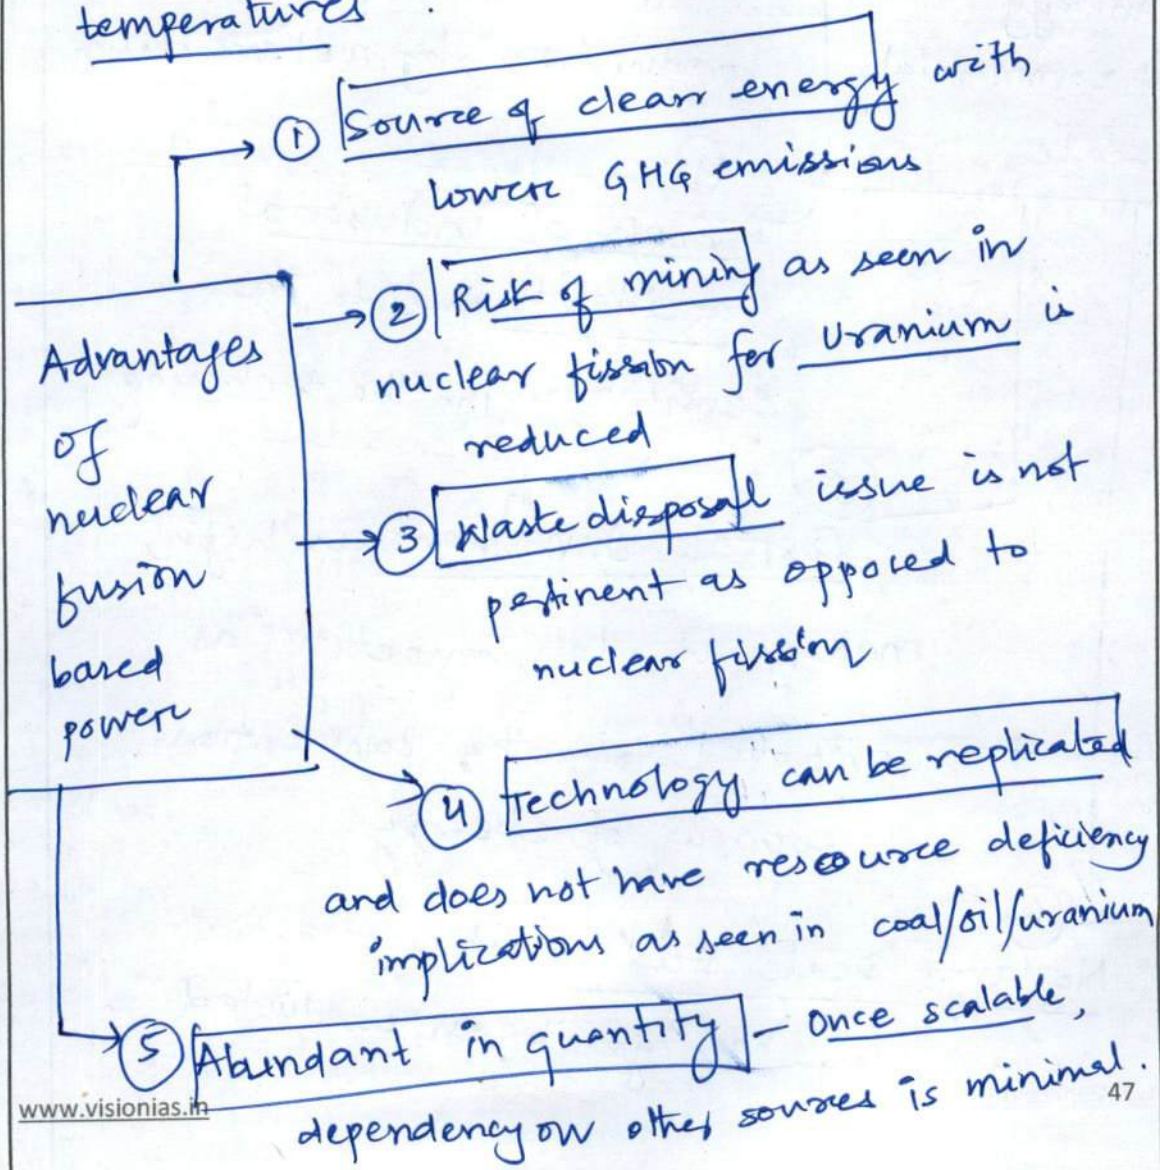 temperatures.
① Source of clean energy with
lower GHG emissions
② Risk of mining as seen in
nuclear fission for Uranium is
reduced
Advantages
of
nuclear
fusion
based
power
③ Waste disposal issue is not
pertinent as opposed to
nuclear fission
④ Technology can be replicated
and does not have resource deficiency
implications as seen in coal/oil/uranium
⑤ Abundant in quantity – Once scalable,
dependency on other sources is minimal.
www.visionias.in
47